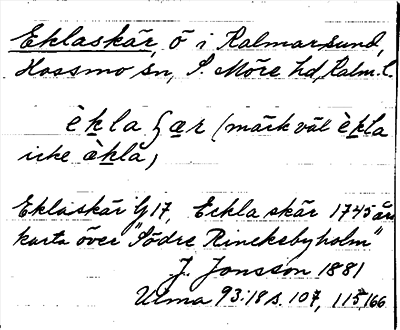 Eklaskär, ö i Kalmarsund,
Hossmo sn, S. Möre hd, Kalm. l.
èkla ʃær (märk väl èkla
icke àkla)
Eklaskär G17, Eckla skär 1745 års
karta över "Södre Rinckebyholm"
J. Jonsson 1881
Ulma 93:18 s. 107, 115, 166